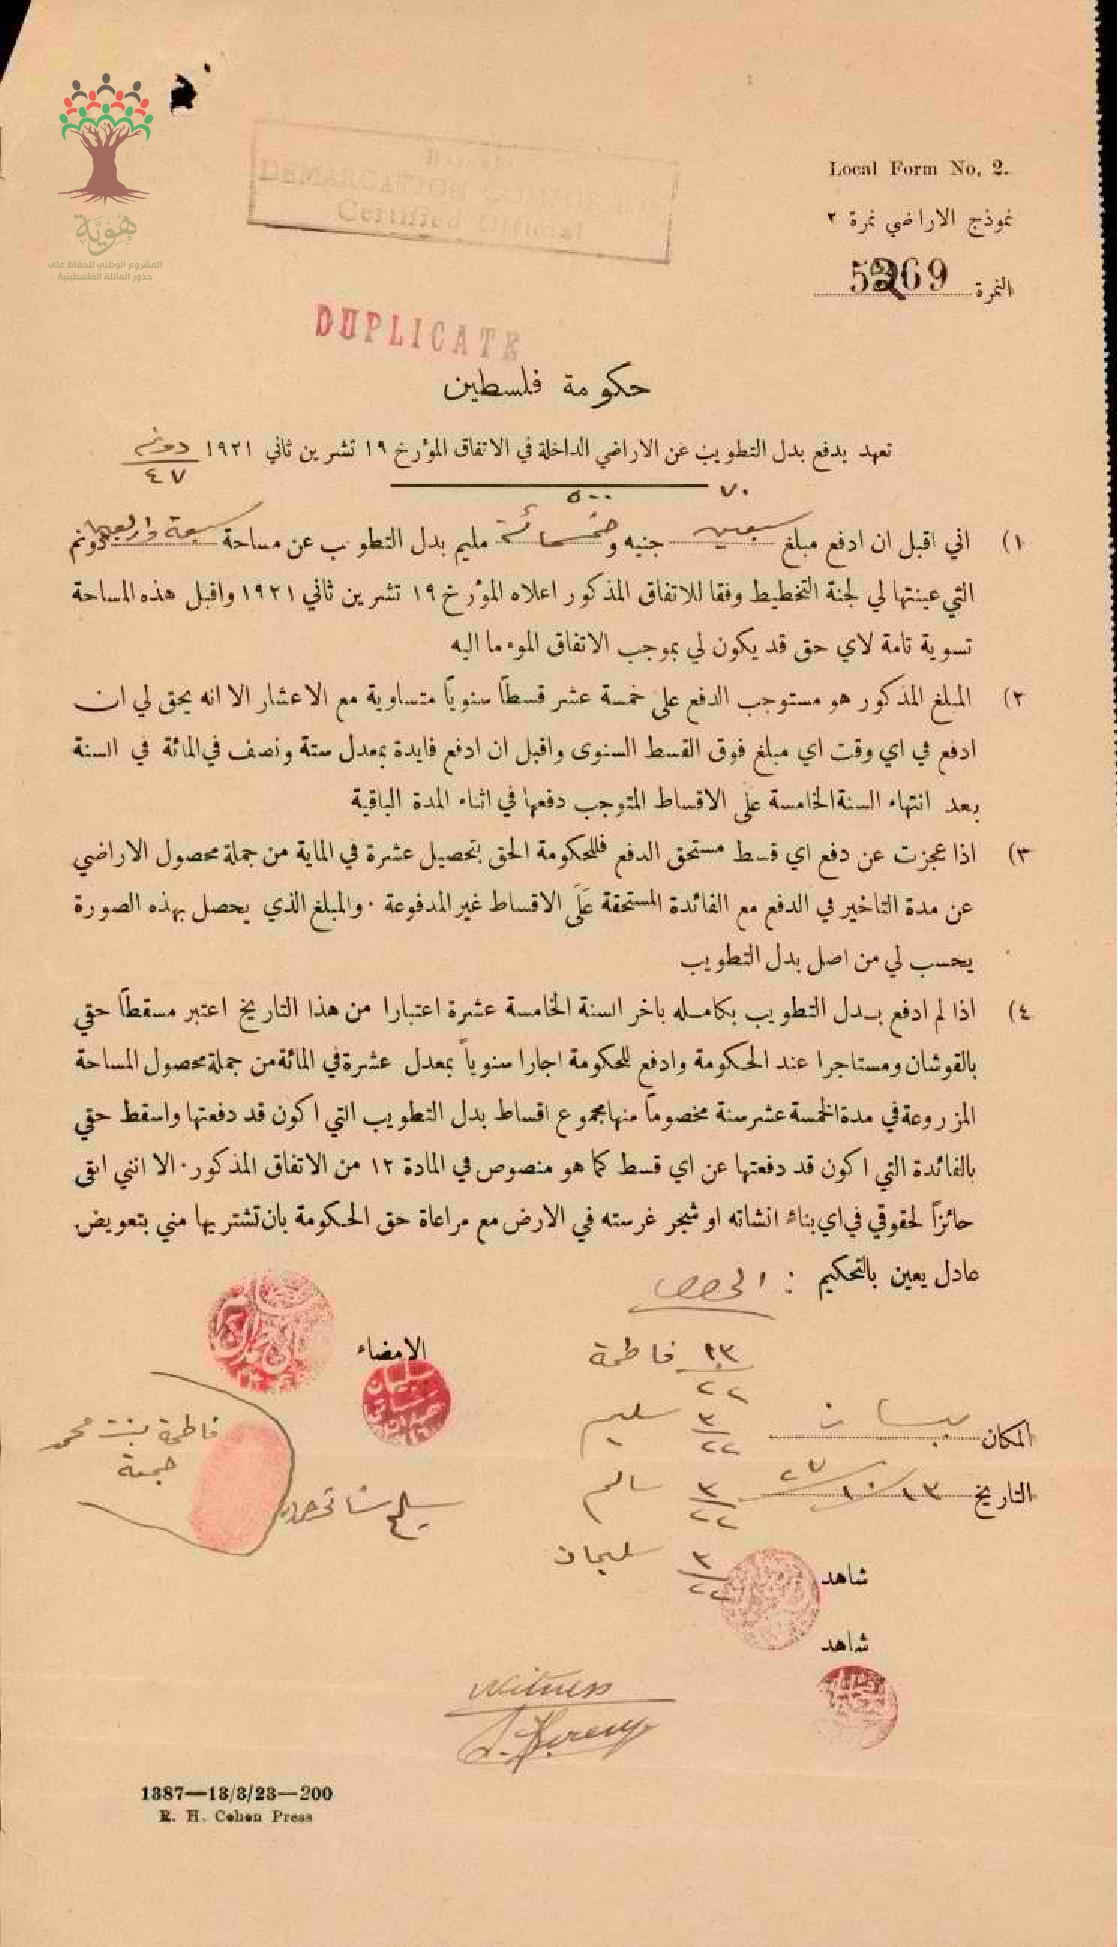 هُوِيَّة
المشروع الوطني للحفاظ على
جذور العائلة الفلسطينية
DEMARCATION COMMISSION
Certified Official
Local Form No. 2.
نموذج الاراضي نمرة ٢
النمرة 5269
DUPLICATE
حكومة فلسطين
تعهد بدفع بدل التطويب عن الاراضي الداخلة في الاتفاق المؤرخ ١٩ تشرين ثاني ١٩٢١ دونم
٤٧
٧٠ ٥٠٠
١) اني اقبل ان ادفع مبلغ سبعين جنيه وخمسمائة مليم بدل التطويب عن مساحة سبعة واربعين دونم
التي عينتها لي لجنة التخطيط وفقا للاتفاق المذكور اعلاه المؤرخ ١٩ تشرين ثاني ١٩٢١ واقبل هذه المساحة
تسوية تامة لاي حق قد يكون لي بموجب الاتفاق الموء ما اليه
٢) المبلغ المذكور هو مستوجب الدفع على خمسة عشر قسطاً سنوياً متساوية مع الاعشار الا انه يحق لي ان
ادفع في اي وقت اي مبلغ فوق القسط السنوى واقبل ان ادفع فايدة بمعدل ستة ونصف في المائة في السنة
بعد انتهاء السنة الخامسة على الاقساط المتوجب دفعها في اثناء المدة الباقية
٣) اذا عجزت عن دفع اي قسط مستحق الدفع فللحكومة الحق بتحصيل عشرة في الماية من جملة محصول الاراضي
عن مدة التاخير في الدفع مع الفائدة المستحقة عَلَى الاقساط غير المدفوعة ٠ والمبلغ الذي يحصل بهذه الصورة
يحسب لي من اصل بدل التطويب
٤) اذا لم ادفع بدل التطويب بكامله باخر السنة الخامسة عشرة اعتبارا من هذا التاريخ اعتبر مسقطاً حقي
بالقوشان ومستاجرا عند الحكومة وادفع للحكومة اجارا سنوياً بمعدل عشرة في المائة من جملة محصول المساحة
المزروعة في مدة الخمسة عشر سنة مخصوماً منها مجموع اقساط بدل التطويب التي اكون قد دفعتها واسقط حقي
بالفائدة التي اكون قد دفعتها عن اي قسط كما هو منصوص في المادة ١٢ من الاتفاق المذكور ٠ الا انني ابقى
حائزاً لحقوقي في اي بناء انشاته او شجر غرسته في الارض مع مراعاة حق الحكومة بان تشتريها مني بتعويض
عادل يعين بالتحكيم : الحصص
الامضاء
١٣ فاطمة
٢٢
٣ سليم
٢٢
المكان بيسان
فاطمة بنت محمد
جمعة
٣ سالم
٢٢
التاريخ ١٣/١٠/٢٧
٣ سليمان
٢٢
شاهد
شاهد
Witness
1387—13/3/23—200
R. H. Cohen Press